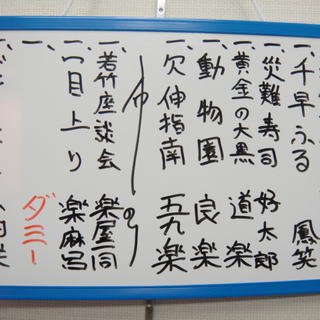 一、千早ふる 鳳笑
一、災難寿司 好太郎
一、黄金の大黒 道楽
一、動物園 良楽
一、欠伸指南 五九楽
仲 入り
一、若竹座談会 楽屋一同
一、二つ目上り 楽麻呂
ダミー